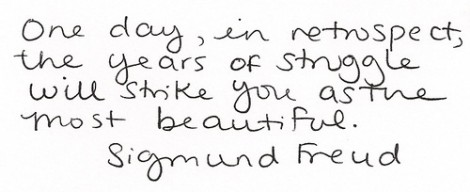 One day, in retrospect,
the years of struggle
will strike you as the
most beautiful.
Sigmund Freud